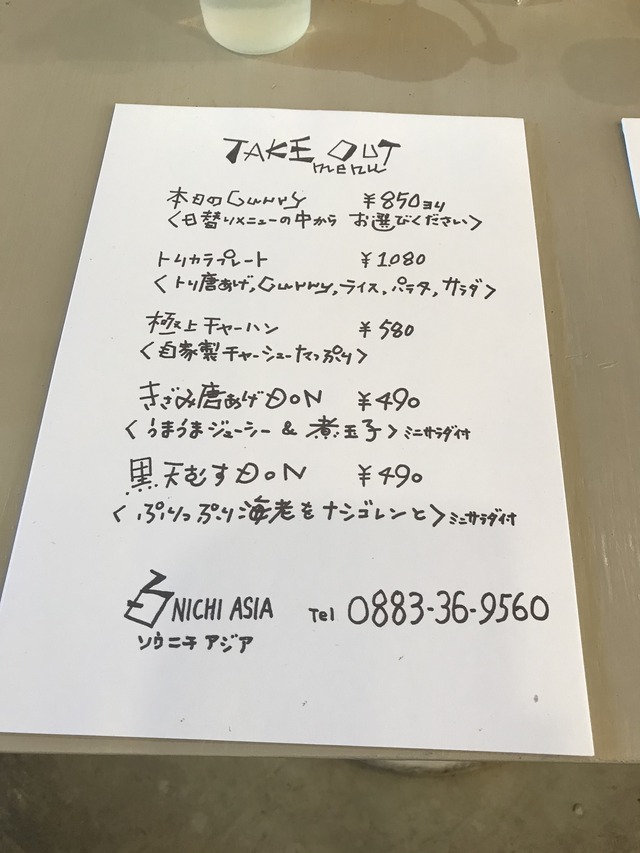 TAKE OUT
menu
本日のCurry ¥850ヨリ
<日替りメニューの中から お選びください>
トリカラプレート ¥1080
<トリ唐あげ, Curry, ライス, パラタ, サラダ>
極上チャーハン ¥580
<自家製チャーシューたっぷり>
きざみ唐あげDON ¥490
<うまうまジューシー & 煮玉子> ミニサラダ付
黒天むすDON ¥490
<ぷりっぷり海老をナシゴレンと> ミニサラダ付
NICHI ASIA Tel 0883-36-9560
ソウニチ アジア